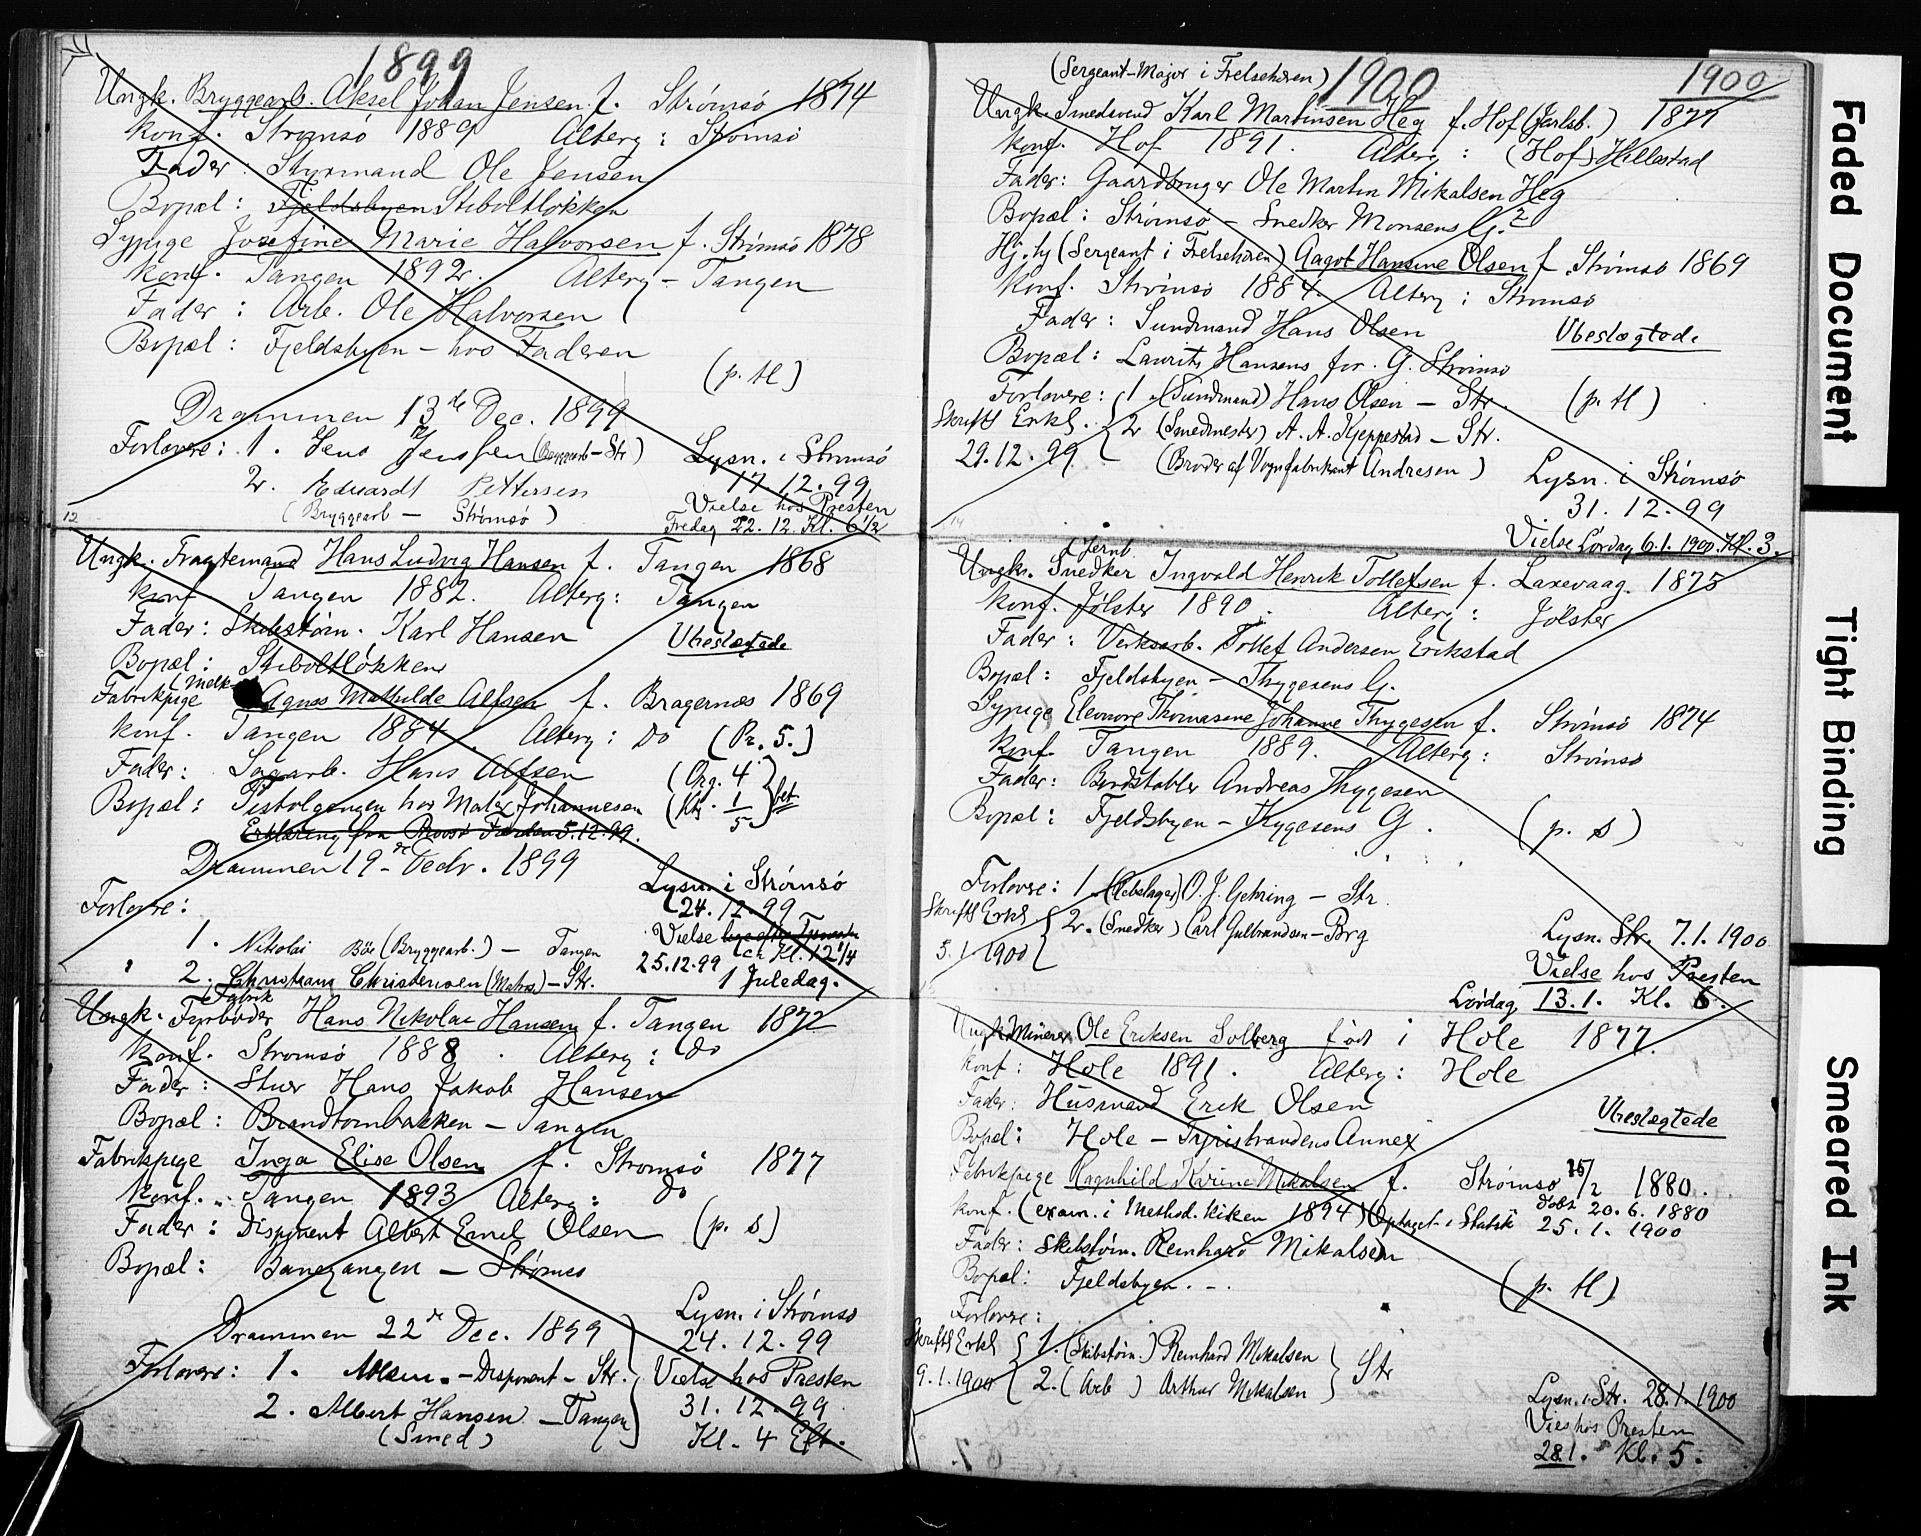 1899
Ungk. Bryggearb. Aksel Johan Jensen f. Strømsø 1874
Konf. Strømsø 1889 Alterg: Strømsø
Fader: Styrmand Ole Jensen
Bopæl: Fjeldsbyen Stiboltløkken
Sypige Josefine Marie Halvorsen f. Strømsø 1878
Konf. Tangen 1892. Alterg - Tangen
Fader: Arb. Ole Halvorsen
Bopæl: Fjeldsbyen - hos Faderen
(p. H)
Drammen 13de Dec. 1899
Forlovere: 1. Jens Jensen (Bryggearb - Str)
2. Eduardt Pettersen
(Bryggearb - Strømsø)
Lysn. i Strømsø
17. 12. 99
Vielse hos Presten
Fredag 22. 12. Kl. 6 1/2
12
Ungk. Fragtemand Hans Ludvig Hansen f. Tangen 1868
Konf Tangen 1882. Alterg: Tangen
Fader: Skibstøm. Karl Hansen
Ubeslægtede
Bopæl: Stiboltløkken
(Melk-
Fabrikpige Agnes Mathilde Alfsen f. Bragernæs 1869
Konf. Tangen 1884. Alterg: Do (Pr. 5.)
Fader: Sagarb. Hans Alfsen (Org. 4
Bopæl: Pistolgangen hos Maler Johannesen (Kl. 1/5) bet.
Erklæring fra Provst Farden 5.12.99.
Drammen 19 de Decbr. 1899
Lysn. i Strømsø
24. 12. 99
Forlovre:
1. Nikolai Bøe (Bryggearb.) - Tangen
2. Christian Christensen (Matros) - Str.
Vielse
25.12.99 ca. Kl. 12 1/4
1 Juledag.
Fabrik
Ungk. Fyrbøder Hans Nikolai Hansen f. Tangen 1872
Konf. Strømsø 1888. Alterg: Do
Fader: Stuer Hans Jakob Hansen
Bopæl: Brandtombakken - Tangen
Fabrikpige Inga Elise Olsen f. Strømsø 1877
Konf. Tangen 1893 Alterg: Do
Fader: Disponent Albert Emil Olsen (p. s)
Bopæl: Banegangen - Strømsø
Drammen 22 Dec. 1899
Forlovere: 1. AOlsen. - Disponent - Str.
2. Albert Hansen - Tangen
(Smed)
Lysn. i Strømsø
24. 12. 99
Vielse hos Presten
31. 12. 99
Kl. 4 Eft.
1900
1900
(Sergeant-Major i Frelsehæren)
Ungk. Smedsvend Karl Martinsen Heg f. Hof (Jarlsb.) 1877
Konf. Hof 1891. Alterg: (Hof) Hillestad
Fader: Gaardbruger Ole Martin Mikalsen Heg
Bopæl: Strømsø - Snedker Monsens G. 2
Hj.ty (Sergeant i Frelsehæren) Aagot Hansine Olsen f. Strømsø 1869
Konf. Strømsø 1884. Alterg: Strømsø
Fader: Sundmand Hans Olsen
Ubeslægtede.
Bopæl: Laurits Hansens for. G. Strømsø
Forlovere: 1. (Sundmand) Hans Olsen - Str. (p. H)
Skriftl Erkl. 2 (Smedmester) A. A. Kjeppestad - Str.
29.12.99 (Broder af Vognfabrikant Andresen)
Lysn. i Strømsø
31. 12. 99
Vielse Lördag 6.1.1900. Kl. 3.
14
i Jernb
Ungk. Snedker Ingvald Henrik Tollefsen f. Laxevaag. 1875
Konf. Jølster 1890. Alterg: Jølster
Fader: Verksarb. Tollef Andersen Erikstad
Bopæl: Fjeldsbyen - Thygesens G.
Sypige Eleonore Thomasine Johanne Thygesen f. Strømsø 1874
Konf. Tangen 1889. Alterg: Strømsø
Fader: Bordstabler Andreas Thygesen
Bopæl: Fjeldsbyen - Thygesens G. (p. s)
Forlovre: 1. (Rebslager) O. J. Gehring - Str.
Skriftl Erkl 2. (Snedker) Carl Gulbrandsen - Brg
5.1.1900
Lysn. Str. 7.1.1900
Vielse hos Presten
Lördag 13.1. Kl. 6.
Ungk Minerer Ole Eriksen Solberg født i Hole 1877.
Konf: Hole 1891. Alterg: Hole
Fader: Husmand Erik Olsen
Ubeslægtede
Bopæl: Hole - Tyristrandens Annex
Fabrikpige Ragnhild Karine Mikalsen f. Strømsø 15/2 1880.
døbt 20. 6. 1880
Konf. (exam. i Method. kirken 1894) Optaget i Statsk 25. 1. 1900
Fader: Skibstöm. Reinhard Mikalsen
Bopæl: Fjeldsbyen. -.
(p. H)
Forlovre:
Skriftl Erkl 1. (Skibstøm.) Reinhard Mikalsen
9.1.1900 2. (Arb) Arthur Mikalsen Str
Lysn. i Str. 28.1.1900
Vies hos Presten
28.1. Kl. 5.
Faded Document
Tight Binding
Smeared Ink